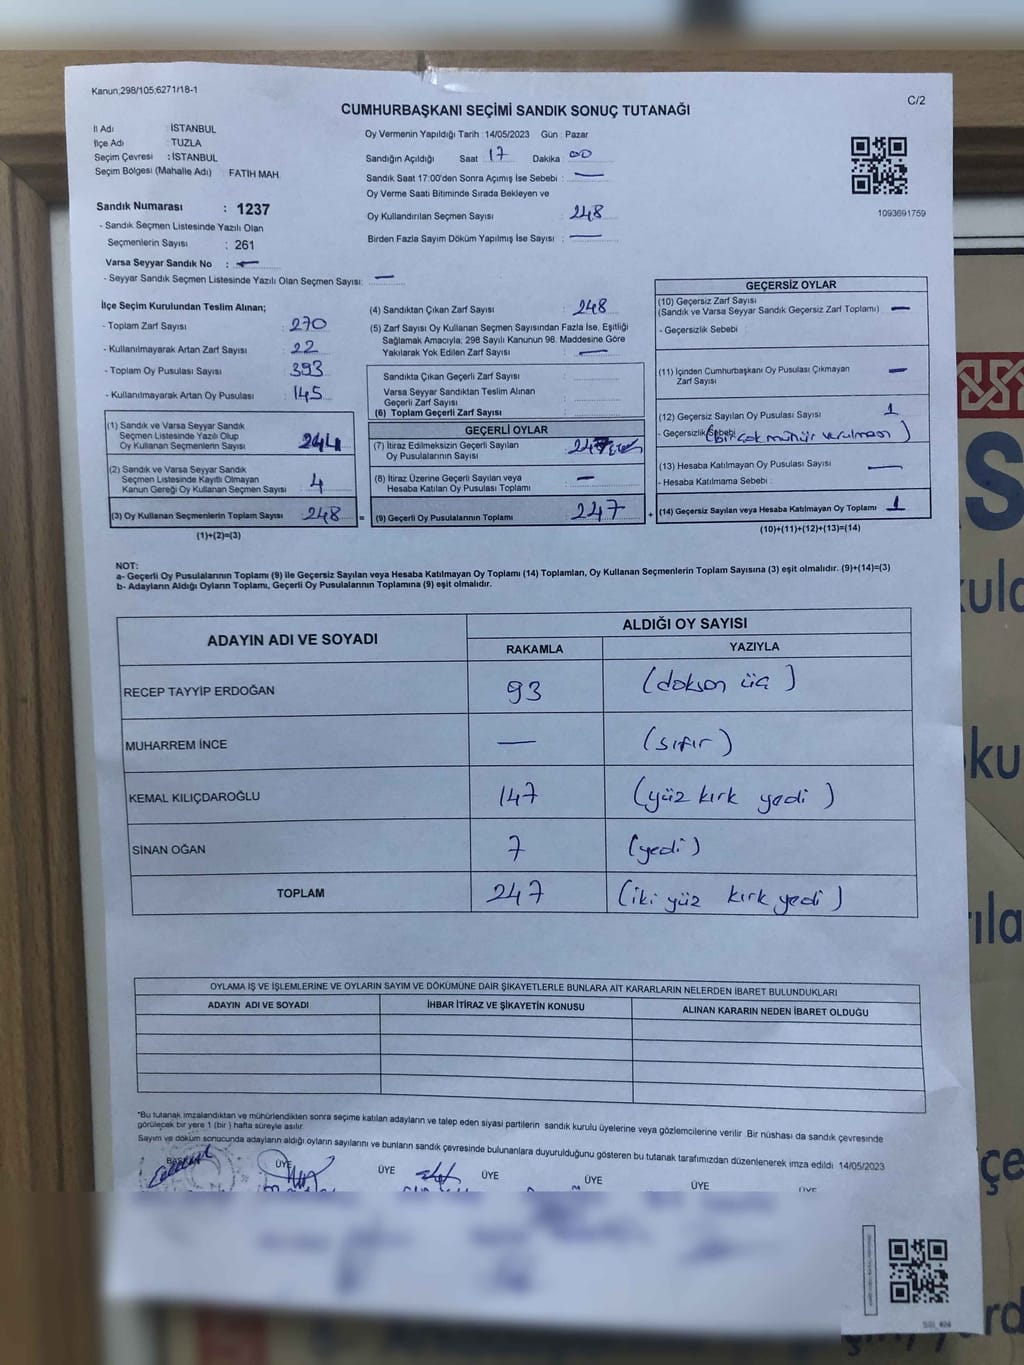 Kanun;298/105;6271/18-1
C/2
CUMHURBAŞKANI SEÇİMİ SANDIK SONUÇ TUTANAĞI
İl Adı : İSTANBUL
İlçe Adı : TUZLA
Seçim Çevresi : İSTANBUL
Seçim Bölgesi (Mahalle Adı) FATİH MAH.
Sandık Numarası : 1237
- Sandık Seçmen Listesinde Yazılı Olan
Seçmenlerin Sayısı : 261
Varsa Seyyar Sandık No : —
- Seyyar Sandık Seçmen Listesinde Yazılı Olan Seçmen Sayısı: —
Oy Vermenin Yapıldığı Tarih : 14/05/2023 Gün : Pazar
Sandığın Açıldığı Saat 17 Dakika 00
Sandık Saat 17:00'den Sonra Açımış İse Sebebi : —
Oy Verme Saati Bitiminde Sırada Bekleyen ve
Oy Kullandırılan Seçmen Sayısı : 248
Birden Fazla Sayım Döküm Yapılmış İse Sayısı : —
1093691759
İlçe Seçim Kurulundan Teslim Alınan;
- Toplam Zarf Sayısı : 270
- Kullanılmayarak Artan Zarf Sayısı : 22
- Toplam Oy Pusulası Sayısı : 393
- Kullanılmayarak Artan Oy Pusulası : 145
(1) Sandık ve Varsa Seyyar Sandık
Seçmen Listesinde Yazılı Olup
Oy Kullanan Seçmenlerin Sayısı 244
(2) Sandık ve Varsa Seyyar Sandık
Seçmen Listesinde Kayıtlı Olmayan
Kanun Gereği Oy Kullanan Seçmen Sayısı 4
(3) Oy Kullanan Seçmenlerin Toplam Sayısı 248 =
(1)+(2)=(3)
(4) Sandıktan Çıkan Zarf Sayısı : 248
(5) Zarf Sayısı Oy Kullanan Seçmen Sayısından Fazla İse, Eşitliği
Sağlamak Amacıyla, 298 Sayılı Kanunun 98. Maddesine Göre
Yakılarak Yok Edilen Zarf Sayısı : —
Sandıkta Çıkan Geçerli Zarf Sayısı :
Varsa Seyyar Sandıktan Teslim Alınan
Geçerli Zarf Sayısı :
(6) Toplam Geçerli Zarf Sayısı :
GEÇERLİ OYLAR
(7) İtiraz Edilmeksizin Geçerli Sayılan
Oy Pusulalarının Sayısı : 247
(8) İtiraz Üzerine Geçerli Sayılan veya
Hesaba Katılan Oy Pusulası Toplamı : —
(9) Geçerli Oy Pusulalarının Toplamı 247 +
GEÇERSİZ OYLAR
(10) Geçersiz Zarf Sayısı
(Sandık ve Varsa Seyyar Sandık Geçersiz Zarf Toplamı) : —
- Geçersizlik Sebebi
(11) İçinden Cumhurbaşkanı Oy Pusulası Çıkmayan
Zarf Sayısı —
(12) Geçersiz Sayılan Oy Pusulası Sayısı 1
- Geçersizlik Sebebi (birçok mühür vurulması)
(13) Hesaba Katılmayan Oy Pusulası Sayısı —
- Hesaba Katılmama Sebebi :
(14) Geçersiz Sayılan veya Hesaba Katılmayan Oy Toplamı 1
(10)+(11)+(12)+(13)=(14)
NOT:
a- Geçerli Oy Pusulalarının Toplamı (9) ile Geçersiz Sayılan veya Hesaba Katılmayan Oy Toplamı (14) Toplamları, Oy Kullanan Seçmenlerin Toplam Sayısına (3) eşit olmalıdır. (9)+(14)=(3)
b- Adayların Aldığı Oyların Toplamı, Geçerli Oy Pusulalarının Toplamına (9) eşit olmalıdır.
ADAYIN ADI VE SOYADI
ALDIĞI OY SAYISI
RAKAMLA YAZIYLA
RECEP TAYYİP ERDOĞAN 93 (doksan üç)
MUHARREM İNCE — (sıfır)
KEMAL KILIÇDAROĞLU 147 (yüz kırk yedi)
SİNAN OĞAN 7 (yedi)
TOPLAM 247 (iki yüz kırk yedi)
OYLAMA İŞ VE İŞLEMLERİNE VE OYLARIN SAYIM VE DÖKÜMÜNE DAİR ŞİKAYETLERLE BUNLARA AİT KARARLARIN NELERDEN İBARET BULUNDUKLARI
ADAYIN ADI VE SOYADI İHBAR İTİRAZ VE ŞİKAYETİN KONUSU ALINAN KARARIN NEDEN İBARET OLDUĞU
*Bu tutanak imzalandıktan ve mühürlendikten sonra seçime katılan adayların ve talep eden siyasi partilerin sandık kurulu üyelerine veya gözlemcilerine verilir. Bir nüshası da sandık çevresinde
görülecek bir yere 1 (bir ) hafta süreyle asılır.
Sayım ve döküm sonucunda adayların aldığı oyların sayılarını ve bunların sandık çevresinde bulunanlara duyurulduğunu gösteren bu tutanak tarafımızdan düzenlenerek imza edildi. 14/05/2023
BAŞKAN ÜYE ÜYE ÜYE ÜYE ÜYE ÜYE